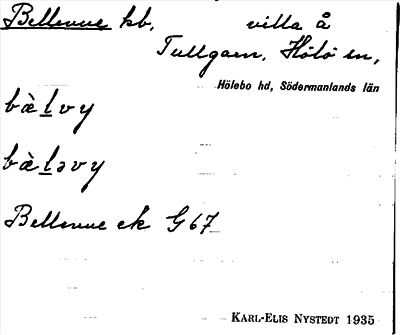 Bellevue kb, villa å
Tullgarn, Hölö sn,
Hölebo hd, Södermanlands län
bὰl̲vy
bὰl̲əvy
Bellevue ek G 67
KARL-ELIS NYSTEDT 1935